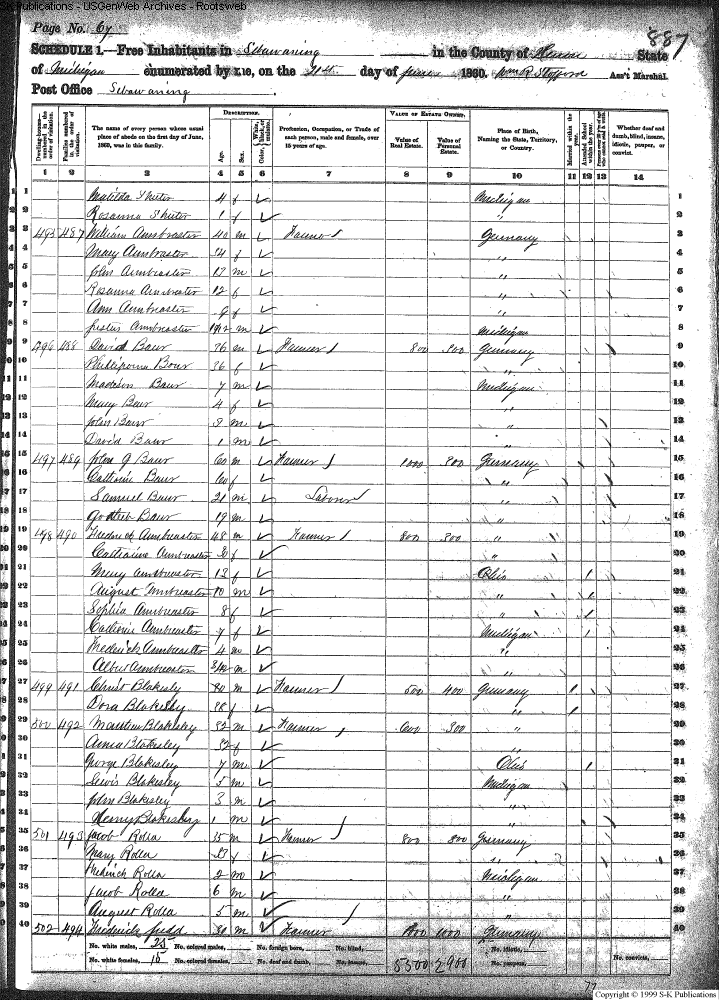 S-K Publications - USGenWeb Archives - Rootsweb
Page No. 67
887
SCHEDULE 1.—Free Inhabitants in Sebawaing in the County of Huron State
of Michigan enumerated by me, on the 21st day of June 1860. Wm R Stafford Ass't Marshal.
Post Office Sebawaing
Dwelling-houses—numbered in the order of visitation.
Families numbered in the order of visitation.
The name of every person whose usual place of abode on the first day of June, 1860, was in this family.
DESCRIPTION.
Age.
Sex.
Color, White, black, or mulatto.
Profession, Occupation, or Trade of each person, male and female, over 15 years of age.
VALUE OF ESTATE OWNED.
Value of Real Estate.
Value of Personal Estate.
Place of Birth, Naming the State, Territory, or Country.
Married within the year.
Attended School within the year.
Whether deaf and dumb, blind, insane, idiotic, pauper, or convict.
1 2 3 4 5 6 7 8 9 10 11 12 13 14
1 Matilda 4 f Michigan 1
2 Rosanna 1 f " 2
3 487 William Armbreaster 40 m Farmer Germany 3
4 Mary Armbreaster 34 f " 4
5 John Armbreaster 13 m " 5
6 Rosanna Armbreaster 12 f " 6
7 Ann Armbreaster 9 f " 7
8 Armbreaster m Michigan 8
9 496 488 David Baur 36 m Farmer 800 300 Germany 9
10 Baur 36 f " 10
11 Baur 7 m Michigan 11
12 Mary Baur 4 f " 12
13 John Baur 3 m " 13
14 David Baur 1 m " 14
15 497 489 John G Baur 60 m Farmer 1000 300 Germany 15
16 Catherine Baur 60 f " 16
17 Samuel Baur 21 m Laborer " 17
18 Gotlieb Baur 19 m " 18
19 498 490 Armbreaster 48 m Farmer 800 300 " 19
20 Catharine Armbreaster f " 20
21 Mary Armbreaster 13 f Ohio 21
22 August Armbreaster 10 m " 22
23 Sophia Armbreaster 8 f "
24 Catherine Armbreaster 7 f Michigan 24
25 Frederick Armbreaster 4 m " 25
26 Albert Armbreaster m " 26
27 499 491 Christ Blakesly 30 m Farmer 500 400 Germany 27
28 Dora Blakesly 38 f " 28
29 500 492 Blakesley 32 m Farmer 600 300 " 29
30 Anna Blakesley 32 f " 30
31 George Blakesley 7 m Ohio 31
32 Lewis Blakesley 5 m Michigan
33 John Blakesley 3 m " 33
34 Henry Blakesley 1 m " 34
35 501 493 Jacob Rolla 35 m Farmer 800 800 Germany 35
36 Mary Rolla f " 36
37 Rolla m Michigan 37
38 Jacob Rolla 6 m " 38
39 August Rolla 5 m " 39
40 502 494 Frederick Judd 30 m Farmer 1000 Germany 40
No. white males, 25 No. colored males, No. foreign born, No. blind, No. idiotic,
No. white females, 15 No. colored females, No. deaf and dumb, No. insane, 5500 2900 No. paupers, No. convicts,
77
Copyright © 1999 S-K Publications